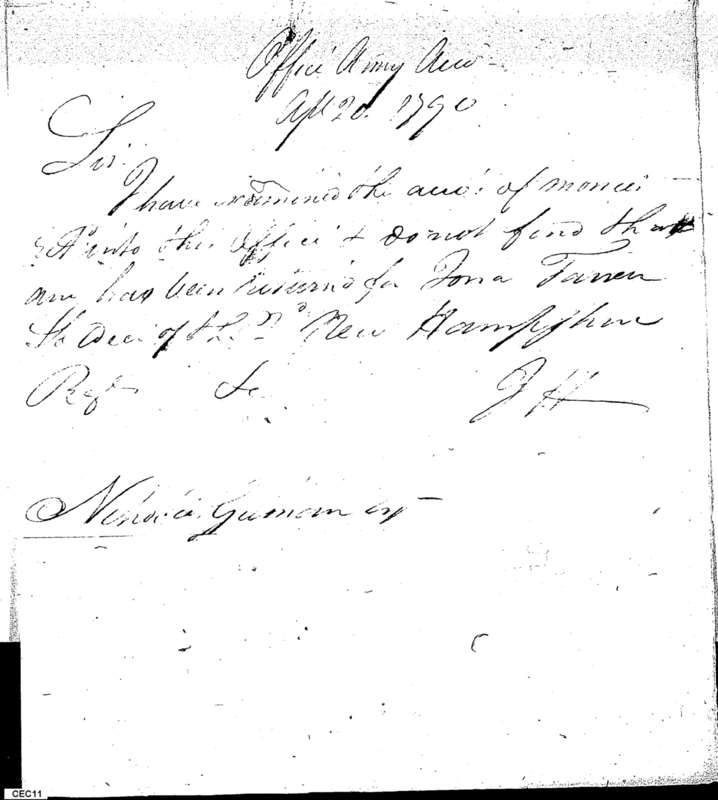 Office Army Acco
Apl 20. 1790
Sir.
I have examined the acco: of monies
into this Office & do not find that
any has been returned for Jona Farren
of the 2nd New Hampshire
Regt &c JH
Esqr
CEC11